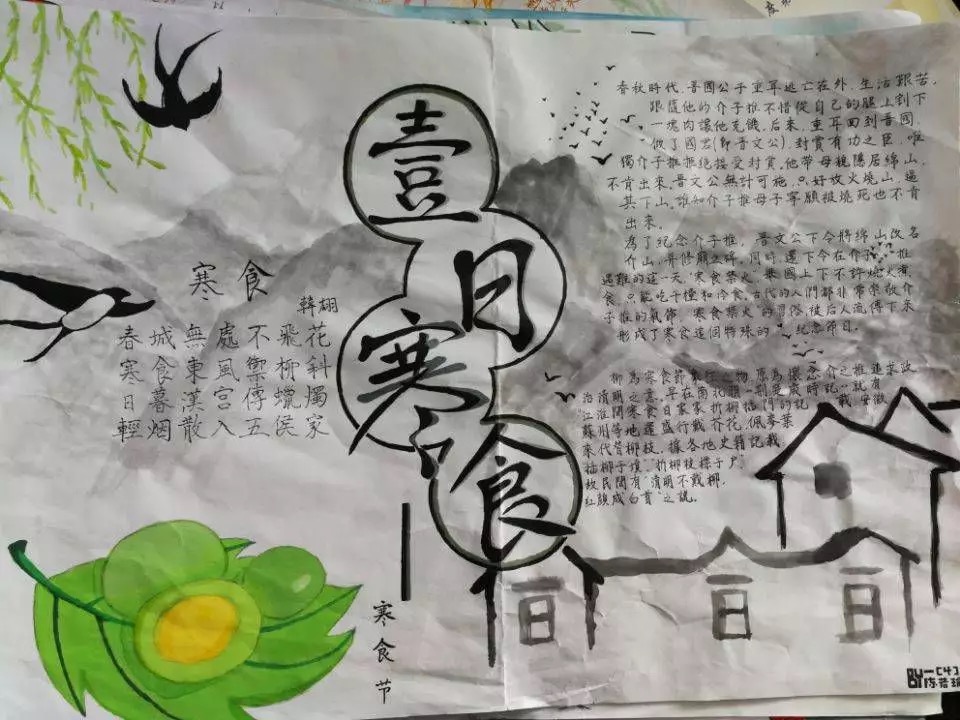 壹日寒食
寒食
韓翃
春城無處不飛花
寒食東風禦柳科
日暮漢宮傳蠟燭
輕烟散入五侯家
春秋時代,晋國公子重耳逃亡在外,生活艱苦,
跟隨他的介子推不惜從自己的腿上割下
一塊肉讓他充饑。后來,重耳回到晋國,
做了國君(即晋文公),封賞有功之臣,唯
獨介子推拒絕接受封賞,他带母親隱居綿山,
不肯出來。晋文公無計可施,只好放火燒山,逼
其下山。誰知介子推母子寧願被燒死也不肯
出來。
為了纪念介子推,晋文公下令將綿山改名
介山,并修廟立碑。同時,還下令在介子推
遇難的這一天"寒食禁火",舉國上下不許燒火煮
食,只能吃干糧和冷食。古代的人們都非常崇敬介
子推的氣節,"寒食禁火"的習俗,被后人流傳下來
形成了寒食這個特殊的纪念節日。
柳為寒食節象征之物,原為懷念介之推追求政
治清明之意。早在南北朝《荆楚歲時記》就有
"江淮間寒食日家家折柳插門"的記載,安徽
蘇州等地還盛行戴介花,佩麥葉
來代替柳枝。據各地史籍記載:
"插柳于墳","折柳枝標于户"
故民間有"清明不戴柳,
红顔成白首"之說。
寒食节
BY一(4)
陈若